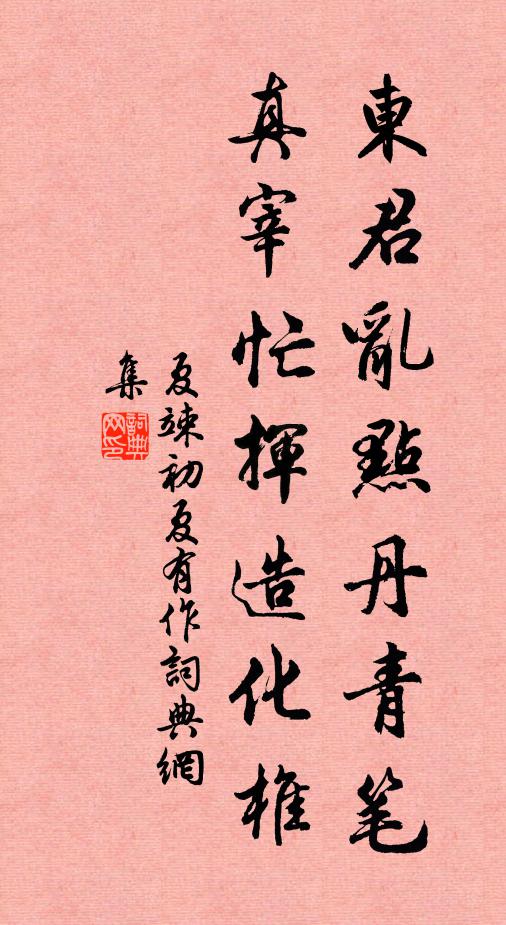 東君亂點丹青笔
真宰忙揮造化椎
夏竦初夏有作詞典網
集
詞典网印